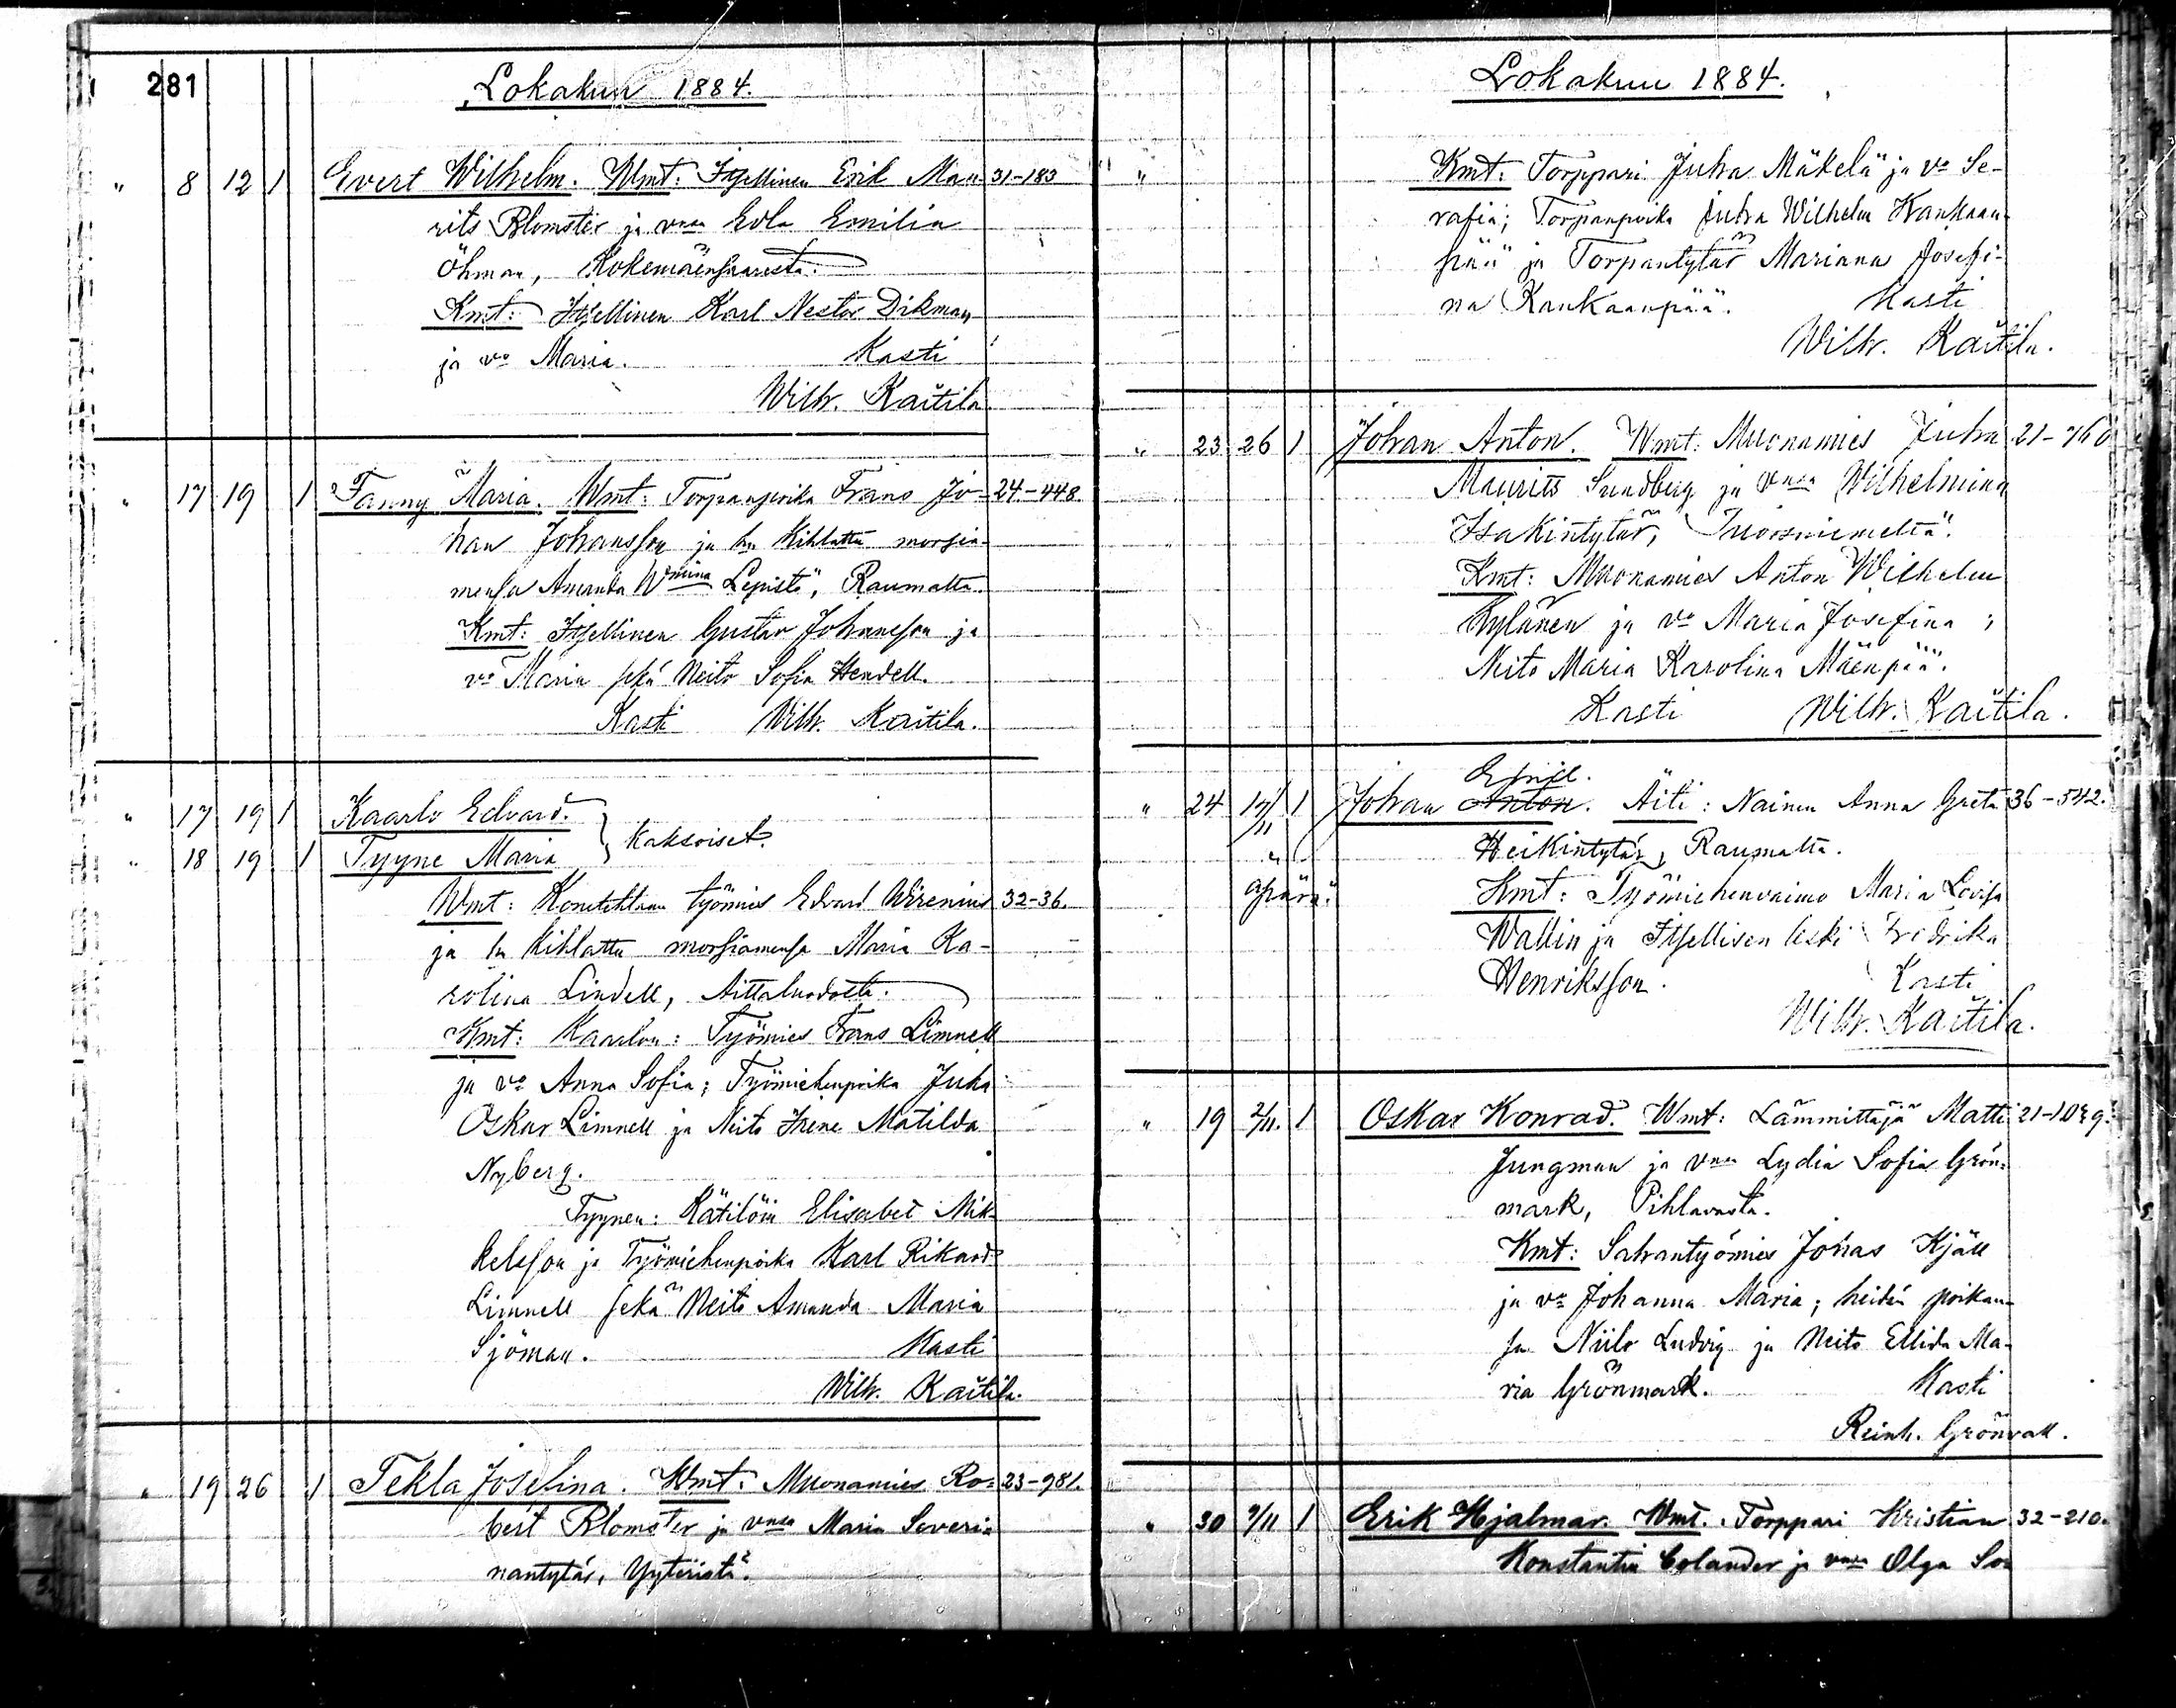 281
Lokakuu 1884.
" 8 12 1 Evert Wilhelm. Wmt: Itsellinen Erik Mau- 31-183
rits Blomster ja vnsa Edla Emilia
Öhman, Kokemäensaaresta.
Kmt: Itsellinen Karl Nestor Dikman
ja vo Maria. Kasti
Wilh. Kaitila
" 17 19 1 Fanny Maria. Wmt: Torpanpoika Frans Jo- 24-448.
han Johansson ja hn kihlattu morsia-
mensa Amanda Wmina Lepistö, Raumalta.
Kmt: Itsellinen Gustav Johansson ja
vo Maria sekä Neito Sofia Hendell.
Kasti Wilh. Kaitila.
" 17 19 1 Kaarlo Edvard.
kaksoiset.
" 18 19 1 Tyyne Maria
Wmt: työmies Edvard Wirenius 32-36.
ja hn kihlattu morsiamensa Maria Ka-
rolina Lindell, Aittaluodosta.
Kmt: Kaarlon: Työmies Frans Limnell
ja vo Anna Sofia; Työmiehenpoika Juha
Oskar Limnell ja Neito Irene Matilda
Nyberg.
Tyynen: Kätilöin Elisabet Mik-
kelsson ja Työmiehenpoika Karl Rikard
Limnell sekä Neito Amanda Maria
Sjöman. Kasti
Wilh. Kaitila.
" 19 26 1 Tekla Josefina. Wmt: Muonamies Ro- 23-981.
bert Blomster ja vnsa Maria Severi-
nantytär, Yyteristä.
Lokakuu 1884.
" Kmt: Torppari Juha Mäkelä ja vo Se-
rafia; Torpanpoika Juha Wilhelm Kankaan-
pää ja Torpantytär Mariana Josefi-
na Kankaanpää. Kasti
Wilh. Kaitila.
" 23 26 1 Johan Anton. Wmt: Muonamies Juha 21-760
Maurits Sundberg ja vnsa Wilhelmina
Isakintytär, Tuorsniemeltä.
Kmt: Muonamies Anton Wilhelm
Kylänen ja vo Maria Josefina;
Neito Maria Karolina Mäenpää.
Kasti Wilh. Kaitila.
Emil.
" 24 17/11 1 Johan Anton. Äiti: Nainen Anna Greta 36-542.
" Heikintytär, Raumalta.
äpärä. Kmt: Työmiehenvaimo Maria Lovisa
Wallin ja Itsellisen leski Fredrika
Henriksson. Kasti
Wilh. Kaitila.
" 19 2/11. 1 Oskar Konrad. Wmt: Lämmittäjä Matti
Jungman ja vnsa Lydia Sofia Grön-
mark, Pihlavasta.
Kmt: Sahantyömies Johas Kjäll
ja vo Johanna Maria; heidän poikan-
sa Niilo Ludvig ja Neito Ellida Ma-
ria Grönmark. Kasti
Reinh. Grönvall.
" 30 9/11 1 Erik Hjalmar. Wmt. Torppari Kristian 32-210.
Konstantin Colander ja vnsa Olga So-